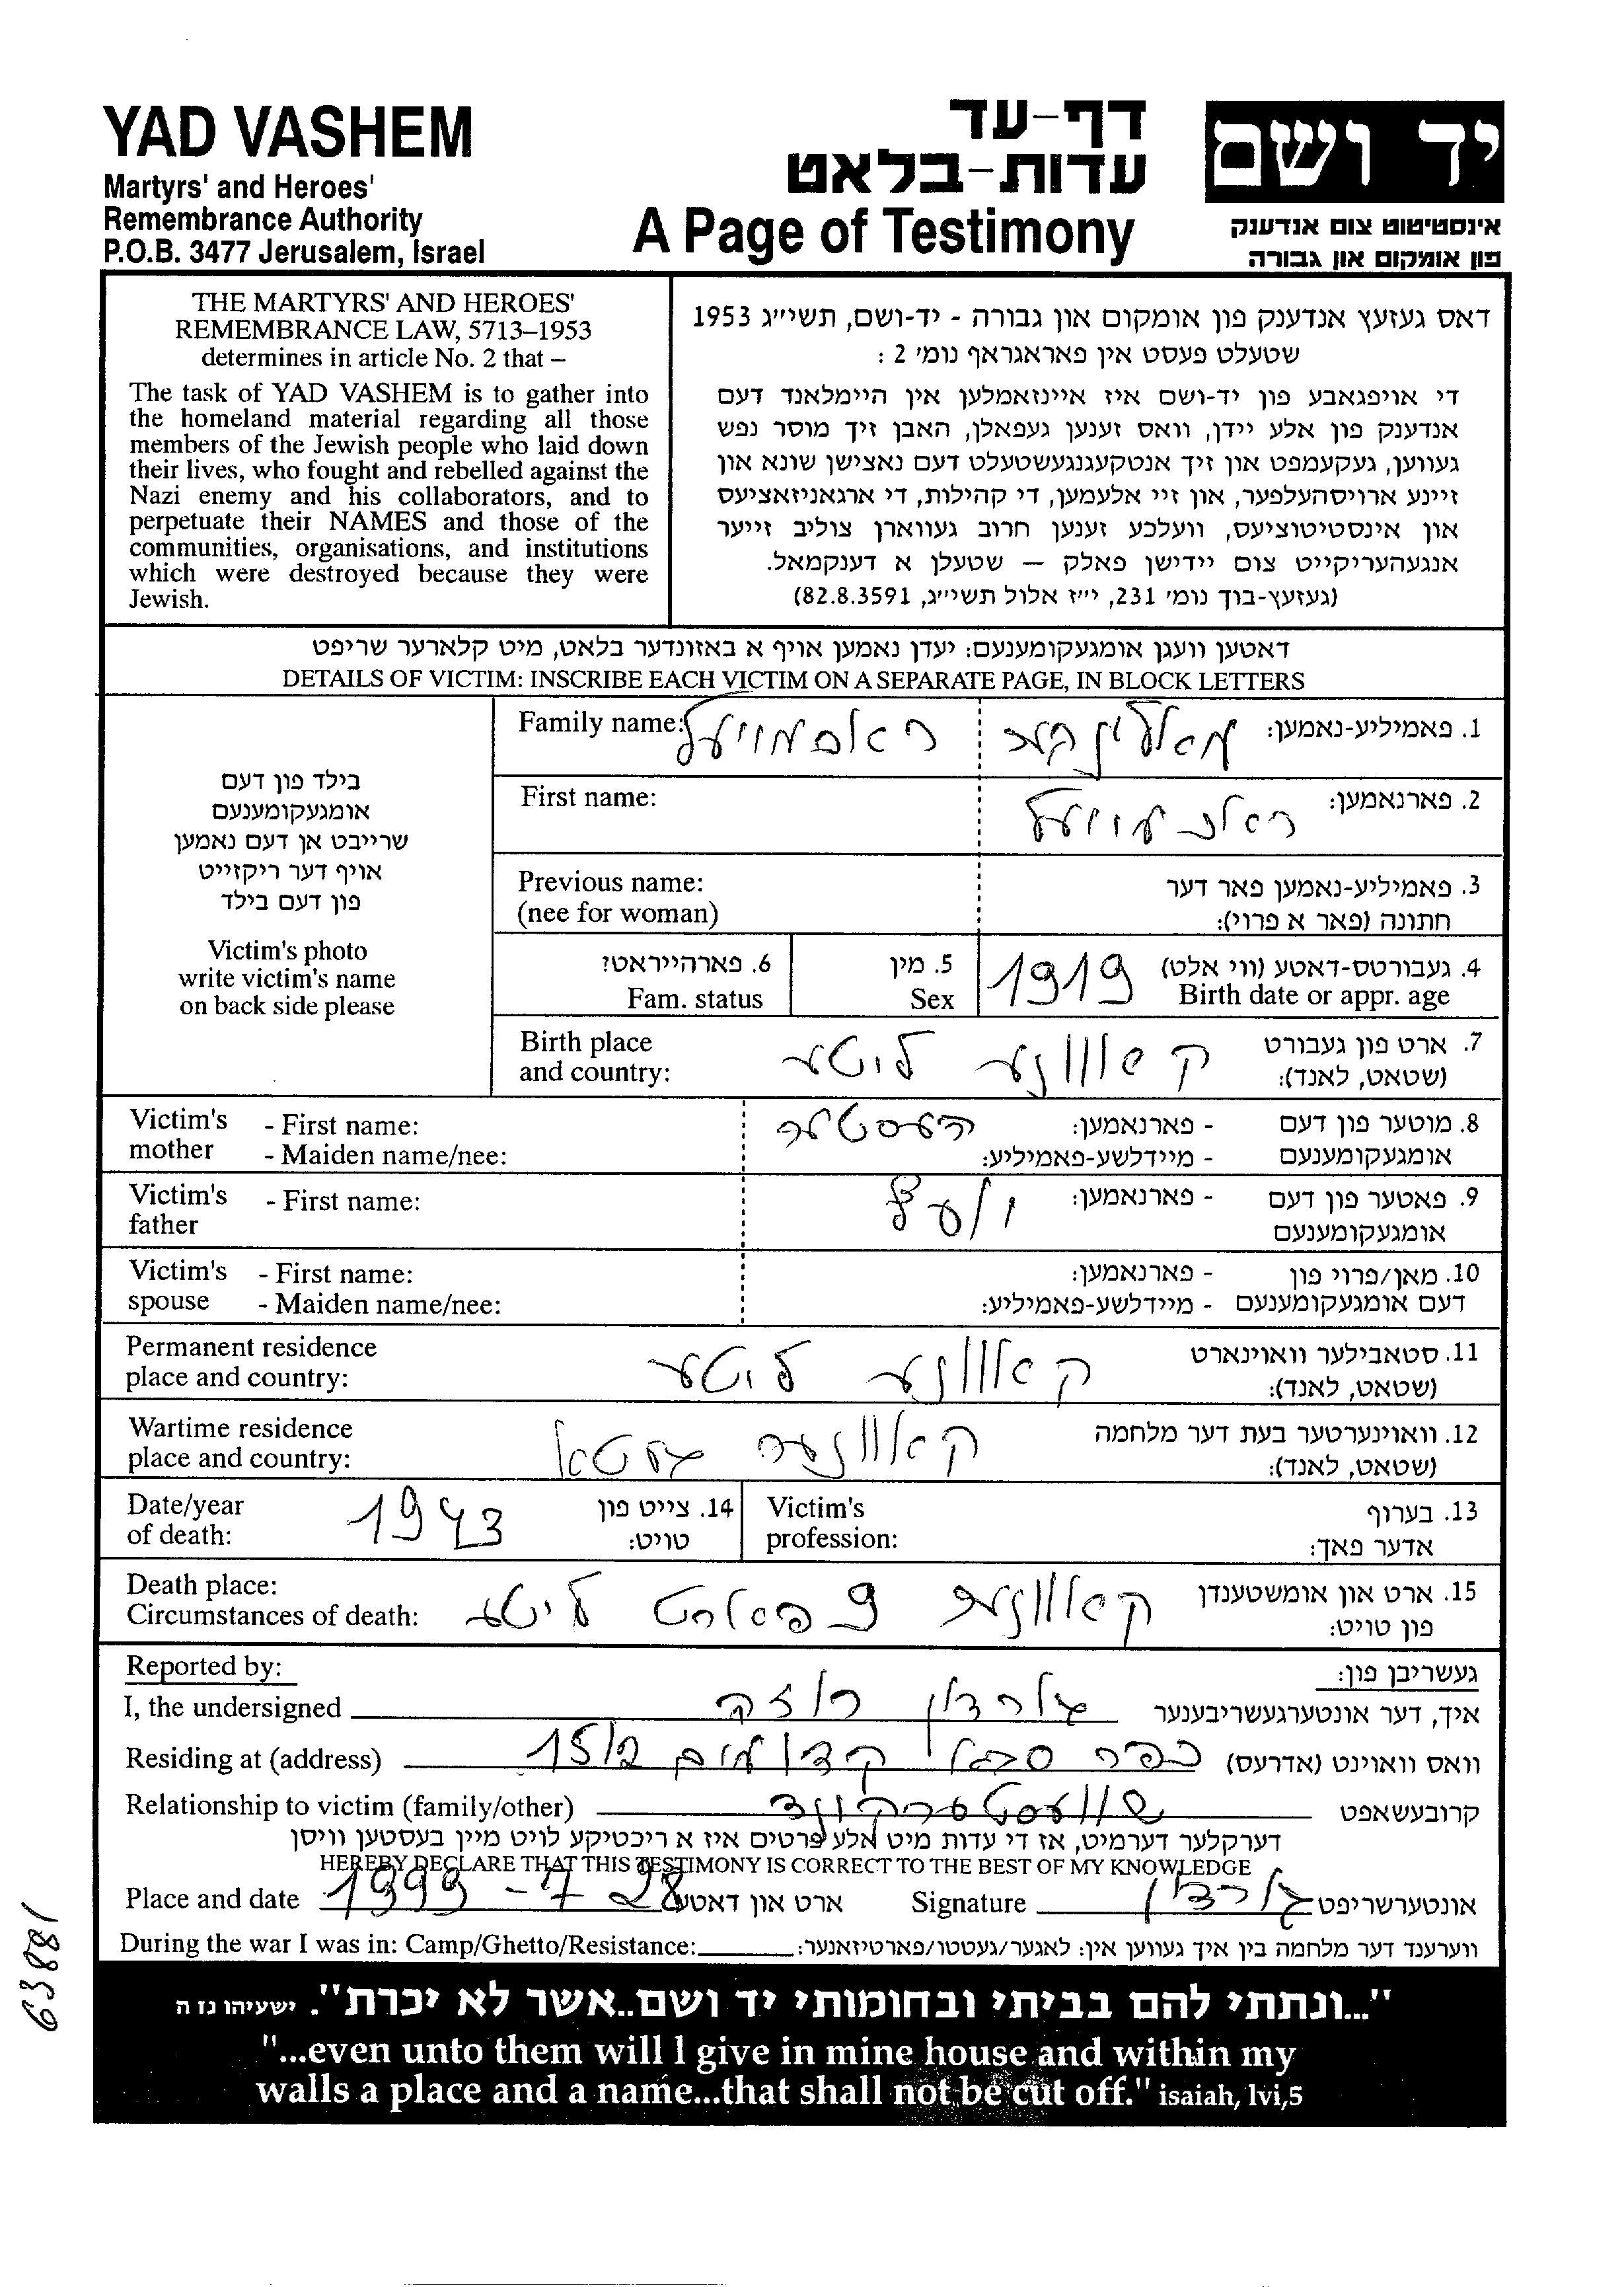 YAD VASHEM
Martyrs' and Heroes'
Remembrance Authority
P.O.B. 3477 Jerusalem, Israel
דף-עד
עדות-בלאט
A Page of Testimony
יד ושם
אינסטיטוט צום אנדענק
פון אומקום און גבורה
THE MARTYRS' AND HEROES'
REMEMBRANCE LAW, 5713–1953
determines in article No. 2 that –
The task of YAD VASHEM is to gather into
the homeland material regarding all those
members of the Jewish people who laid down
their lives, who fought and rebelled against the
Nazi enemy and his collaborators, and to
perpetuate their NAMES and those of the
communities, organisations, and institutions
which were destroyed because they were
Jewish.
דאס געזעץ אנדענק פון אומקום און גבורה - יד-ושם, תשי״ג 1953
שטעלט פעסט אין פאראגראף נומ׳ 2 :
די אויפגאבע פון יד-ושם איז איינזאמלען אין היימלאנד דעם
אנדענק פון אלע יידן, וואס זענען געפאלן, האבן זיך מוסר נפש
געווען, געקעמפט און זיך אנטקעגנגעשטעלט דעם נאצישן שונא און
זיינע ארויסהעלפער, און זיי אלעמען, די קהילות, די ארגאניזאציעס
און אינסטיטוציעס, וועלכע זענען חרוב געווארן צוליב זייער
אנגעהעריקייט צום יידישן פאלק — שטעלן א דענקמאל.
(געזעץ-בוך נומ׳ 231, י״ז אלול תשי״ג, 82.8.3591)
דאטען וועגן אומגעקומענעם: יעדן נאמען אויף א באזונדער בלאט, מיט קלארער שריפט
DETAILS OF VICTIM: INSCRIBE EACH VICTIM ON A SEPARATE PAGE, IN BLOCK LETTERS
בילד פון דעם
אומגעקומענעם
שרייבט אן דעם נאמען
אויף דער ריקזייט
פון דעם בילד
Victim's photo
write victim's name
on back side please
Family name:
1. פאמיליע-נאמען:
First name:
2. פארנאמען:
Previous name:
(nee for woman)
3. פאמיליע-נאמען פאר דער
חתונה (פאר א פרוי):
4. געבורטס-דאטע (ווי אלט) 1919
Birth date or appr. age
5. מין
Sex
6. פארהייראט?
Fam. status
Birth place
and country:
7. ארט פון געבורט קאוונע ליטע
(שטאט, לאנד):
Victim's mother - First name:
- Maiden name/nee:
8. מוטער פון דעם אומגעקומענעם - פארנאמען: העסטער
- מיידלשע-פאמיליע:
Victim's father - First name:
9. פאטער פון דעם אומגעקומענעם - פארנאמען:
Victim's spouse - First name:
- Maiden name/nee:
10. מאן/פרוי פון דעם אומגעקומענעם - פארנאמען:
- מיידלשע-פאמיליע:
Permanent residence
place and country:
11. סטאבילער וואוינארט קאוונע ליטע
(שטאט, לאנד):
Wartime residence
place and country:
12. וואוינערטער בעת דער מלחמה קאוונער געטא
(שטאט, לאנד):
Date/year
of death:
14. צייט פון 1943
טויט:
Victim's
profession:
13. בערוף
אדער פאך:
Death place:
Circumstances of death:
15. ארט און אומשטענדן קאוונע 9 פארט ליטע
פון טויט:
Reported by:
געשריבן פון:
I, the undersigned גורדון רוזה איך, דער אונטערגעשריבענער
Residing at (address) כפר סבא קדומים 15/2 וואס וואוינט (אדרעס)
Relationship to victim (family/other) שוועסטערקינד קרובעשאפט
דערקלער דערמיט, אז די עדות מיט אלע פרטים איז א ריכטיקע לויט מיין בעסטען וויסן
HEREBY DECLARE THAT THIS TESTIMONY IS CORRECT TO THE BEST OF MY KNOWLEDGE
Place and date 1999 - 7 28 ארט און דאטע Signature גורדון אונטערשריפט
During the war I was in: Camp/Ghetto/Resistance: ווערענד דער מלחמה בין איך געווען אין: לאגער/געטטו/פארטיזאנער:
"...ונתתי להם בביתי ובחומותי יד ושם..אשר לא יכרת". ישעיהו נז ה
"...even unto them will I give in mine house and within my
walls a place and a name...that shall not be cut off." isaiah, lvi,5
63881